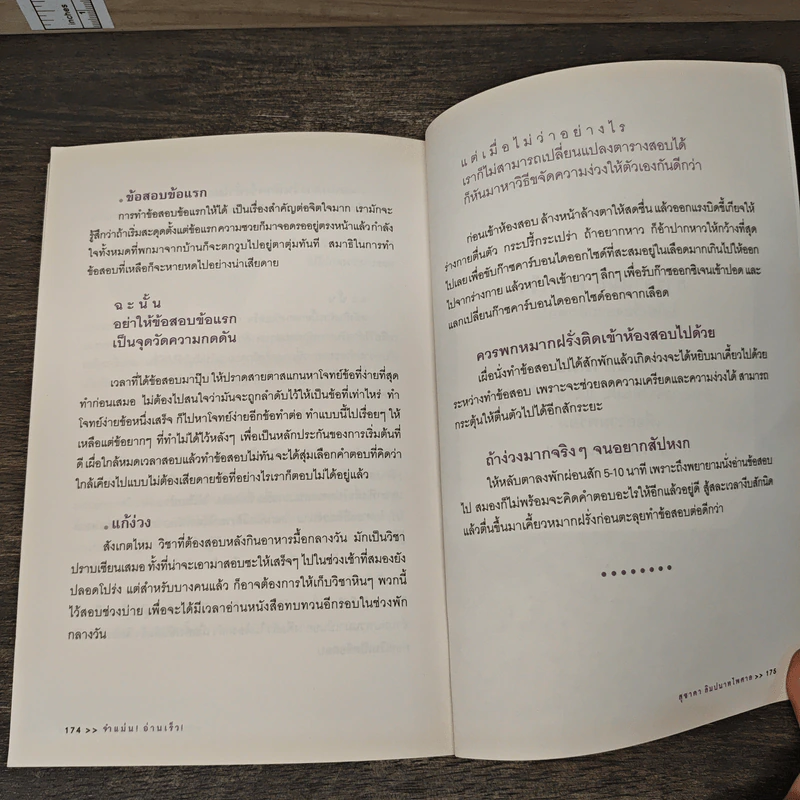 inches
1
• ข้อสอบข้อแรก
การทำข้อสอบข้อแรกให้ได้ เป็นเรื่องสำคัญต่อจิตใจมาก เรามักจะ
รู้สึกว่าถ้าเริ่มสะดุดตั้งแต่ข้อแรก ความซวยก็มาจอดรออยู่ตรงหน้าแล้ว กำลัง
ใจทั้งหมดที่พกมาจากบ้านก็จะตกวูบไปอยู่ตาตุ่มทันที สมาธิในการทำ
ข้อสอบที่เหลือก็จะหายหดไปอย่างน่าเสียดาย
ฉะนั้น
อย่าให้ข้อสอบข้อแรก
เป็นจุดวัดความกดดัน
เวลาที่ได้ข้อสอบมาปุ๊บ ให้ปราดสายตาสแกนหาโจทย์ข้อที่ง่ายที่สุด
ทำก่อนเสมอ ไม่ต้องไปสนใจว่ามันจะถูกลำดับไว้ให้เป็นข้อที่เท่าไหร่ ทำ
โจทย์ง่ายข้อหนึ่งเสร็จ ก็ไปหาโจทย์ง่ายอีกข้อทำต่อ ทำแบบนี้ไปเรื่อยๆ ให้
เหลือแต่ข้อยากๆ ที่ทำไม่ได้ไว้หลังๆ เพื่อเป็นหลักประกันของการเริ่มต้นที่
ดี เผื่อใกล้หมดเวลาสอบแล้วทำข้อสอบไม่ทัน จะได้สุ่มเลือกคำตอบที่คิดว่า
ใกล้เคียงไปแบบไม่ต้องเสียดายข้อที่อย่างไรเราก็ตอบไม่ได้อยู่แล้ว
• แก้ง่วง
สังเกตไหม วิชาที่ต้องสอบหลังกินอาหารมื้อกลางวัน มักเป็นวิชา
ปราบเซียนเสมอ ทั้งที่น่าจะเอามาสอบซะให้เสร็จๆ ไปในช่วงเช้าที่สมองยัง
ปลอดโปร่ง แต่สำหรับบางคนแล้ว ก็อาจต้องการให้เก็บวิชาหินๆ พวกนี้
ไว้สอบช่วงบ่าย เพื่อจะได้มีเวลาอ่านหนังสือทบทวนอีกรอบในช่วงพัก
กลางวัน
174 >> จำแม่น! อ่านเร็ว!
แต่เมื่อไม่ว่าอย่างไร
เราก็ไม่สามารถเปลี่ยนแปลงตารางสอบได้
ก็หันมาหาวิธีขจัดความง่วงให้ตัวเองกันดีกว่า
ก่อนเข้าห้องสอบ ล้างหน้าล้างตาให้สดชื่น แล้วออกแรงบิดขี้เกียจให้
ร่างกายตื่นตัว กระปรี้กระเปร่า ถ้าอยากหาว ก็อ้าปากหาวให้กว้างที่สุด
ไปเลย เพื่อขับก๊าซคาร์บอนไดออกไซด์ที่สะสมอยู่ในเลือดมากเกินไปให้ออก
ไปจากร่างกาย แล้วหายใจเข้ายาวๆ ลึกๆ เพื่อรับก๊าซออกซิเจนเข้าปอด และ
แลกเปลี่ยนก๊าซคาร์บอนไดออกไซด์ออกจากเลือด
ควรพกหมากฝรั่งติดเข้าห้องสอบไปด้วย
เผื่อนั่งทำข้อสอบไปได้สักพักแล้วเกิดง่วง จะได้หยิบมาเคี้ยวไปด้วย
ระหว่างทำข้อสอบ เพราะจะช่วยลดความเครียดและความง่วงได้ สามารถ
กระตุ้นให้ตื่นตัวไปได้อีกสักระยะ
ถ้าง่วงมากจริงๆ จนอยากสัปหงก
ให้หลับตาลงพักผ่อนสัก 5-10 นาที เพราะถึงพยายามนั่งอ่านข้อสอบ
ไป สมองก็ไม่พร้อมจะคิดคำตอบอะไรให้อีกแล้วอยู่ดี สู้สละเวลางีบสักนิด
แล้วตื่นขึ้นมาเคี้ยวหมากฝรั่งก่อนตะลุยทำข้อสอบต่อดีกว่า
สุชาดา ลิมปนาทไพศาล >> 175